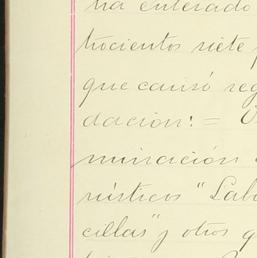 ha enterado
trocientos siete
que causó reg
dación: =
minación
rústicos "Lab
cillas" y otros q